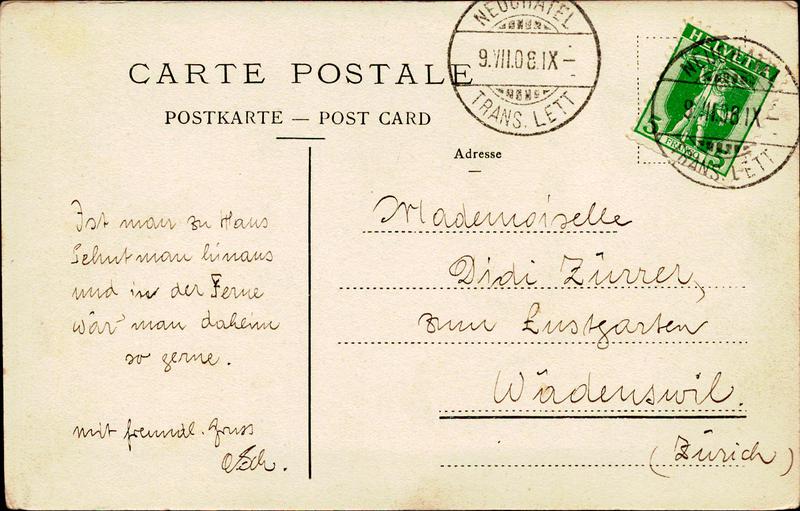 CARTE POSTALE
POSTKARTE — POST CARD
NEUCHATEL
9.VII.08.IX–
TRANS. LETT
HELVETIA
5 FRANCO 5
9.VII.08 IX
TRANS. LETT
Adresse
Mademoiselle
Didi Zürrer,
zum Lustgarten
Wädenswil.
(Zürich)
Ist man zu Haus
Sehnt man hinaus
und in der Ferne
wär man daheim
so gerne.
mit freundl. Gruss